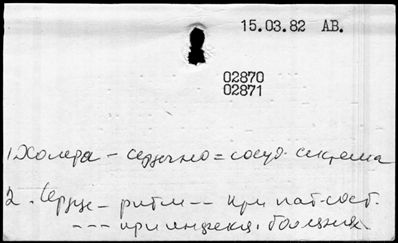 15.03.82 АВ.
02870
02871
1) Холера – сердечно = сосуд. система
2. Сердце – ритм –– при пат. сост.
––– при инфекц. болезнях